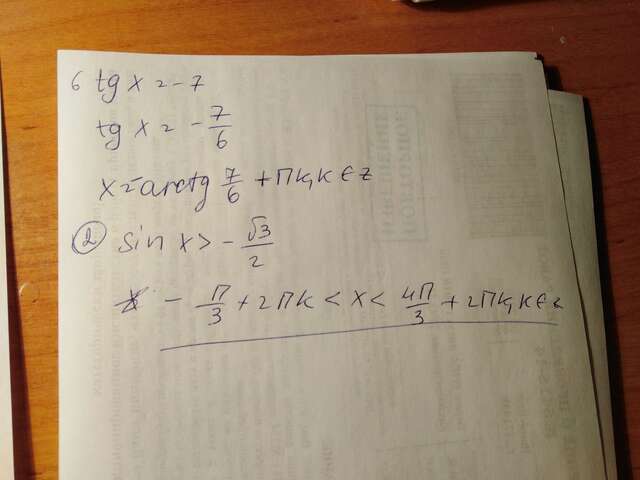 6 tg x = -7
tg x = -7/6
x = arctg 7/6 + πk, k ∈ z
② sin x > -√3/2
-π/3 + 2πk < x < 4π/3 + 2πk, k ∈ z